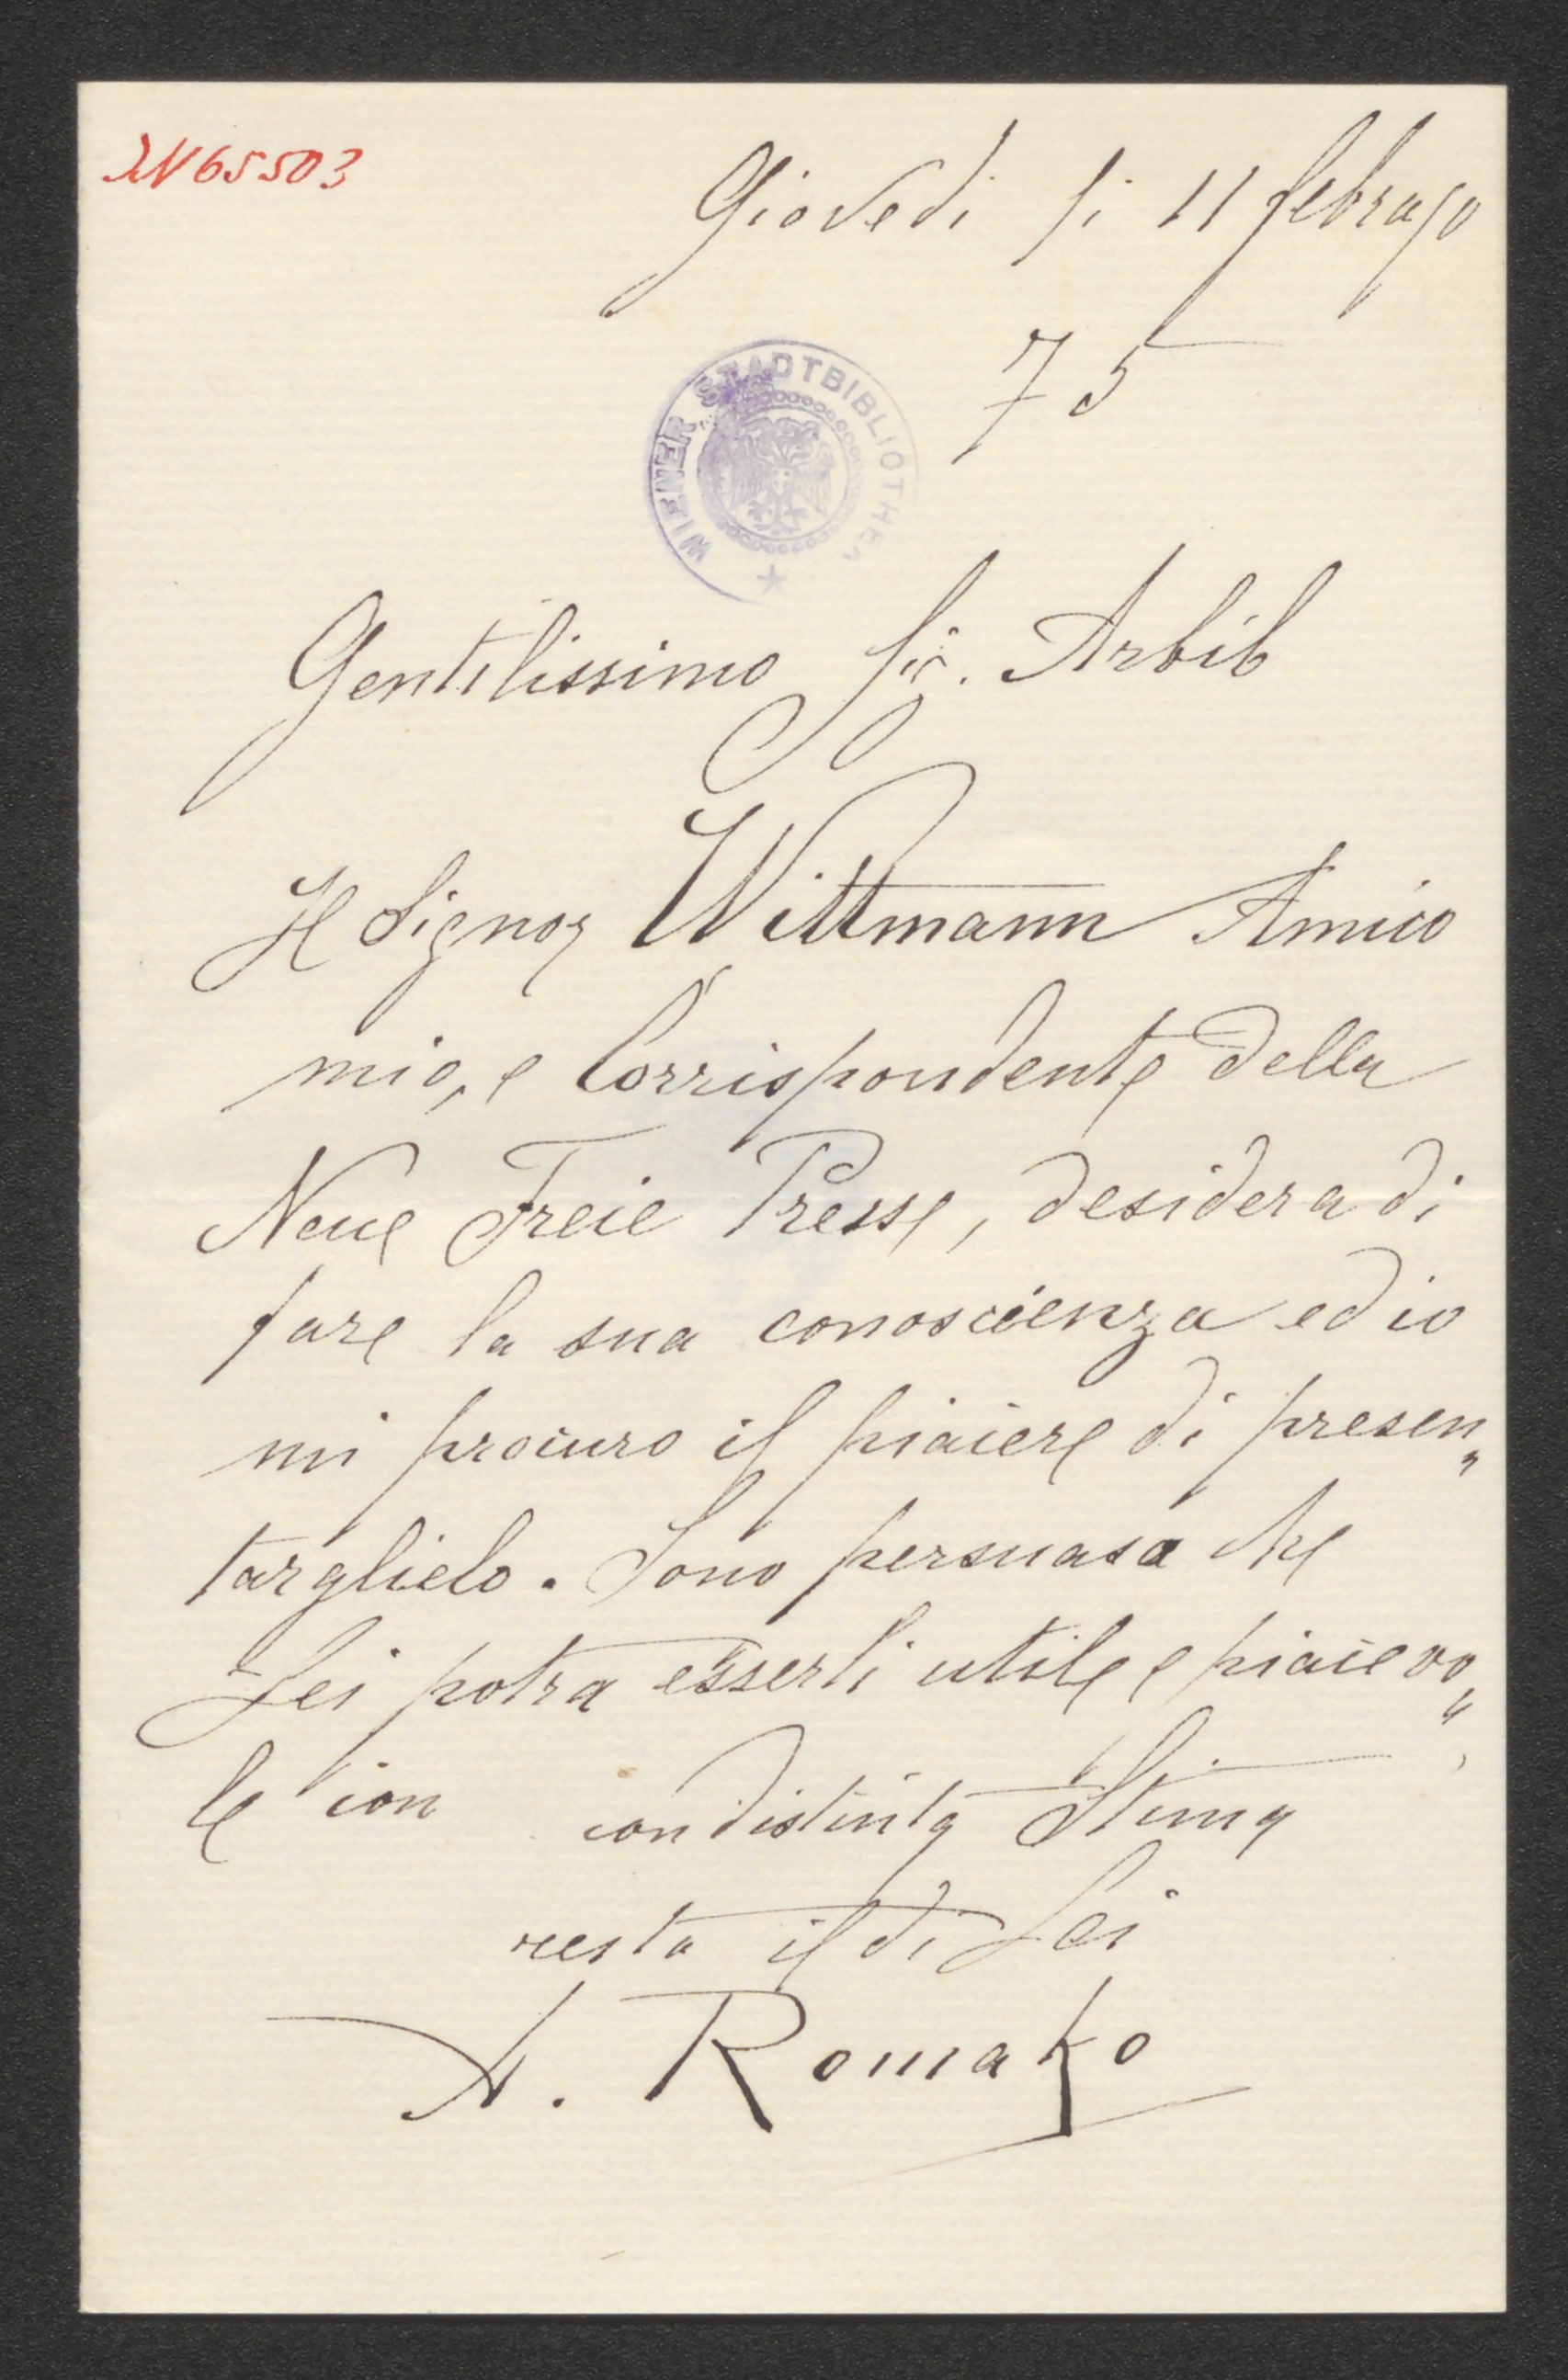 IN 65503
Giovedi li 11 febrajo
75
WIENER STADTBIBLIOTHEK
Gentilissimo Sig. Arbib
Il Signor Wittmann Amico
mio, e Corrispondente della
Neue Freie Presse, desidera di
fare la sua conoscienza ed io
mi procuro il piaciere di presen„
targlielo. Sono persuasa che
Lei potra esserli utile e piacievo„
le con con distinta Stima
resta il di Lei
A. Romako